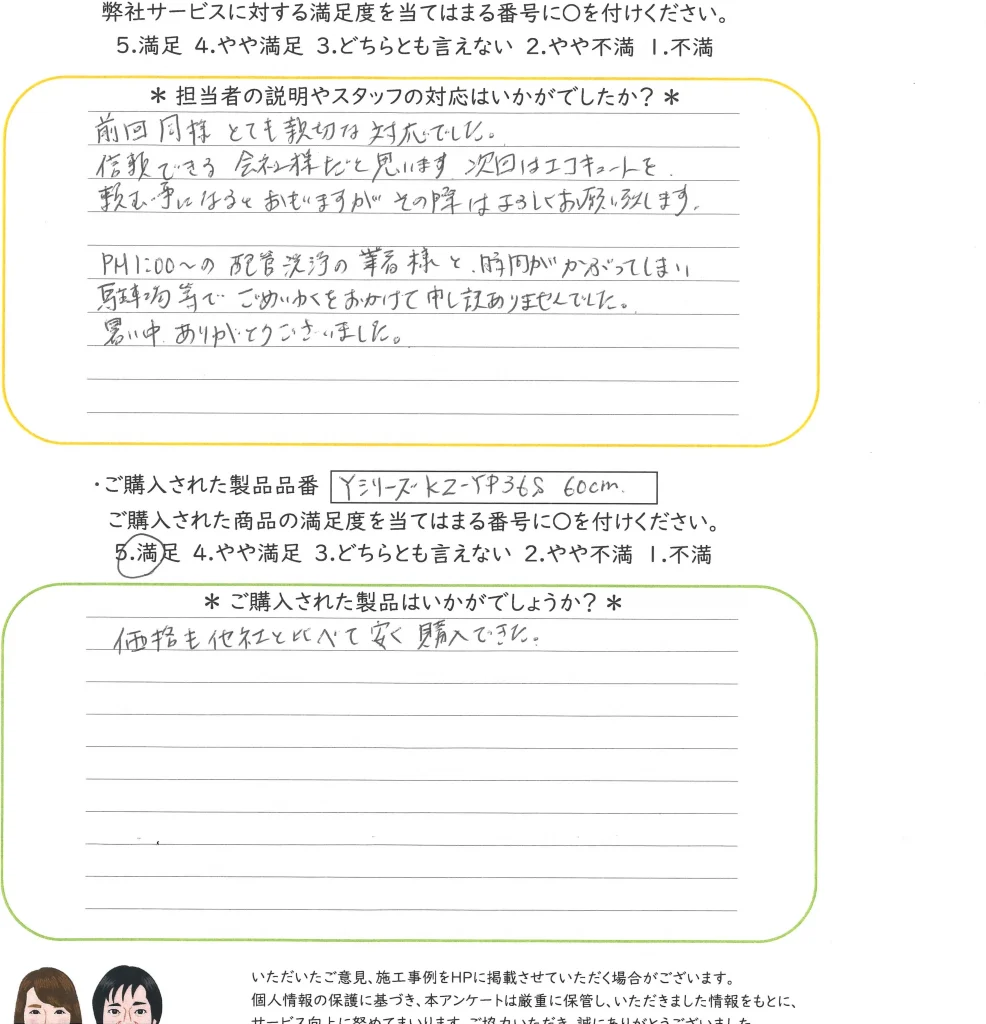 弊社サービスに対する満足度を当てはまる番号に〇を付けください。
5.満足 4.やや満足 3.どちらとも言えない 2.やや不満 1.不満
＊ 担当者の説明やスタッフの対応はいかがでしたか？ ＊
前回同様 とても親切な対応でした。
信頼できる 会社様だと思います 次回はエコキュートを
頼む事になるとおもいますが その際はよろしくお願い致します。
PM1:00〜の 配管洗浄の業者様と、時間がかぶってしまい
駐車場等で ごめいわくをおかけて申し訳ありませんでした。
暑い中 ありがとうございました。
・ご購入された製品品番 Yシリーズ KZ-YP36S 60cm.
ご購入された商品の満足度を当てはまる番号に〇を付けください。
5.満足 4.やや満足 3.どちらとも言えない 2.やや不満 1.不満
＊ ご購入された製品はいかがでしょうか？ ＊
価格も他社と比べて安く購入できた。
いただいたご意見、施工事例をHPに掲載させていただく場合がございます。
個人情報の保護に基づき、本アンケートは厳重に保管し、いただきました情報をもとに、
サービス向上に努めてまいります。ご協力いただき、誠にありがとうございました。